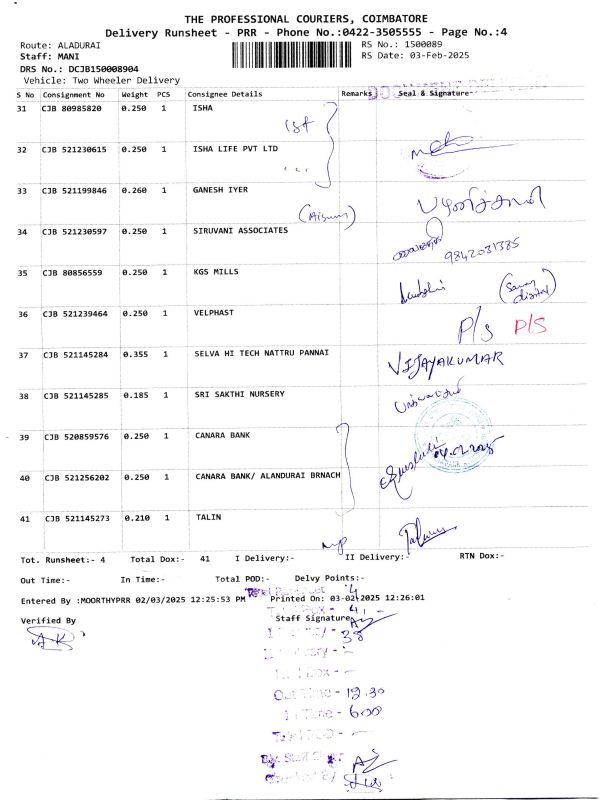 THE PROFESSIONAL COURIERS, COIMBATORE
Delivery Runsheet - PRR - Phone No.:0422-3505555 - Page No.:4
Route: ALADURAI RS No.: 1500089
Staff: MANI RS Date: 03-Feb-2025
DRS No.: DCJB150008904
Vehicle: Two Wheeler Delivery
S No Consignment No Weight PCS Consignee Details Remarks Seal & Signature
31 CJB 80985820 0.250 1 ISHA
Ist
32 CJB 521230615 0.250 1 ISHA LIFE PVT LTD
33 CJB 521199846 0.260 1 GANESH IYER
34 CJB 521230597 0.250 1 SIRUVANI ASSOCIATES
9842031385
35 CJB 80856559 0.250 1 KGS MILLS
36 CJB 521239464 0.250 1 VELPHAST
P/S P/S
37 CJB 521145284 0.355 1 SELVA HI TECH NATTRU PANNAI VIJAYAKUMAR
38 CJB 521145285 0.185 1 SRI SAKTHI NURSERY
39 CJB 520859576 0.250 1 CANARA BANK
40 CJB 521256202 0.250 1 CANARA BANK/ ALANDURAI BRNACH
41 CJB 521145273 0.210 1 TALIN
Tot. Runsheet:- 4 Total Dox:- 41 I Delivery:- II Delivery:- RTN Dox:-
Out Time:- In Time:- Total POD:- Delvy Points:-
Entered By :MOORTHYPRR 02/03/2025 12:25:53 PM Printed On: 03-02-2025 12:26:01
4
Verified By Staff Signature
41
38
Out Time - 12.30
In Time - 600